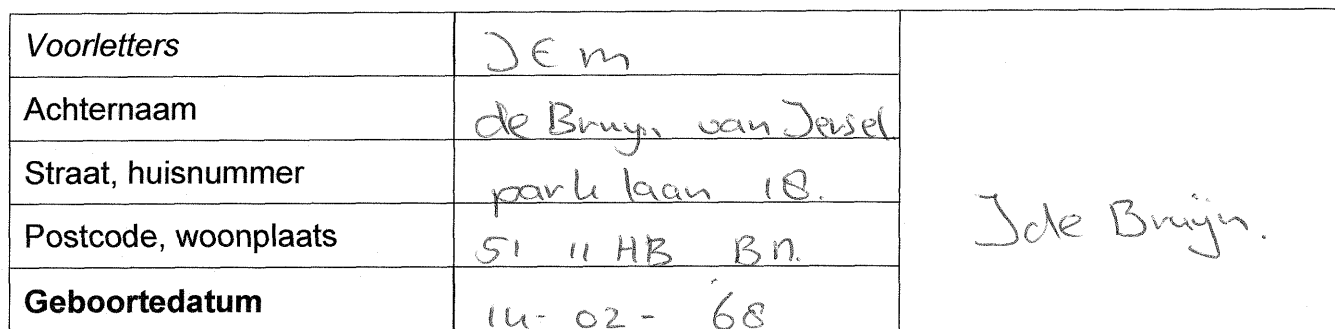 Voorletters JEM
Achternaam de Bruyn van Iersel
Straat, huisnummer park laan 18.
Postcode, woonplaats 5111HB Bn.
Geboortedatum 14-02-'68
J de Bruijn.